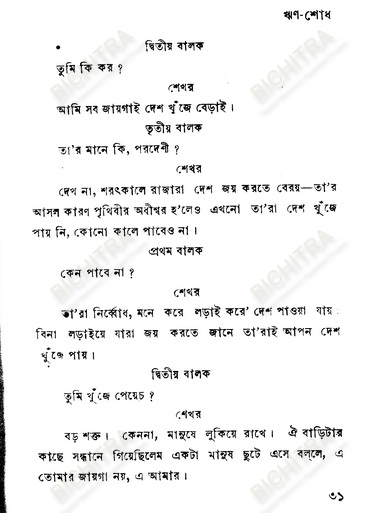 ঋণ-শোধ
দ্বিতীয় বালক
তুমি কি কর ?
শেখর
আমি সব জায়গাই দেশ খুঁজে বেড়াই ।
তৃতীয় বালক
তা'র মানে কি, পরদেশী ?
শেখর
দেখ না, শরৎকালে রাজারা দেশ জয় করতে বেরয়—তা'র
আসল কারণ পৃথিবীর অধীশ্বর হ'লেও এখনো তা'রা দেশ খুঁজে
পায় নি, কোনো কালে পাবেও না ।
প্রথম বালক
কেন পাবে না ?
শেখর
তা'রা নির্ব্বোধ, মনে করে লড়াই করে' দেশ পাওয়া যায়
বিনা লড়াইয়ে যারা জয় করতে জানে তা'রাই আপন দেশ
খুঁজে পায় ।
দ্বিতীয় বালক
তুমি খুঁজে পেয়েচ ?
শেখর
বড় শক্ত । কেননা, মানুষে লুকিয়ে রাখে । ঐ বাড়িটার
কাছে সন্ধানে গিয়েছিলেম একটা মানুষ ছুটে এসে বল্‌লে, এ
তোমার জায়গা নয়, এ আমার ।
৩১
BICHITRA